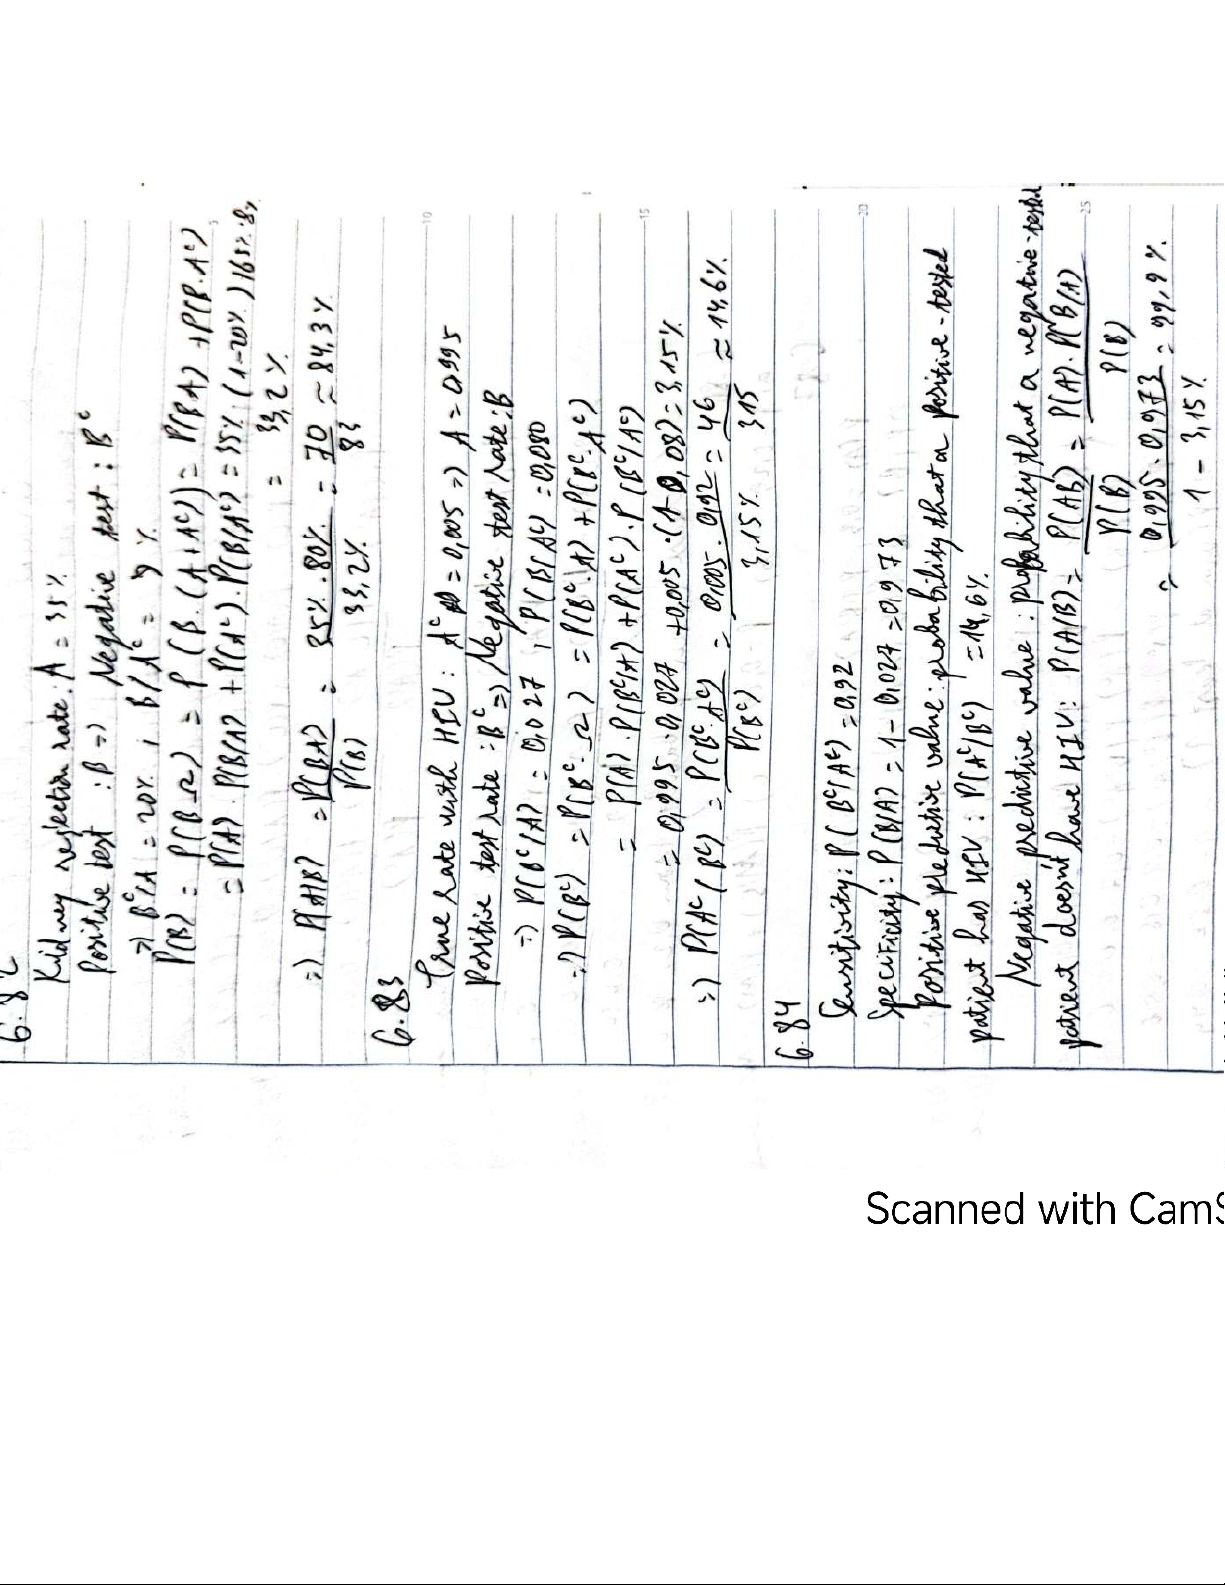 6.82
Kidney rejection rate: A = 35%
Positive test : B => Negative test : Bᶜ
=> Bᶜ/A = 20% ; B/Aᶜ = 8%
P(B) = P(B.Ω) = P(B.(A+Aᶜ)) = P(BA) + P(B.Aᶜ)
= P(A). P(B/A) + P(Aᶜ). P(B/Aᶜ) = 35%. (1-20%) + 65%.8%
= 33,2%
=> P(A/B) = P(BA) / P(B) = 35%.80% / 33,2% = 70 / 83 ≈ 84,3%
6.83
True rate with HIV : Aᶜ = 0,005 => A = 0,995
Positive test rate : Bᶜ => Negative test rate : B
=> P(Bᶜ/A) = 0,027 , P(B/Aᶜ) = 0,080
=> P(Bᶜ) = P(Bᶜ.Ω) = P(Bᶜ.A) + P(Bᶜ.Aᶜ)
= P(A). P(Bᶜ/A) + P(Aᶜ). P(Bᶜ/Aᶜ)
= 0,995 . 0,027 + 0,005 . (1-0,08) = 3,15%
=> P(Aᶜ/Bᶜ) = P(Bᶜ.Aᶜ) / P(Bᶜ) = 0,005 . 0,92 / 3,15% = 46 / 315 ≈ 14,6%
6.84
Sensitivity: P(Bᶜ/Aᶜ) = 0,92
Specificity: P(B/A) = 1 - 0,027 = 0,973
Positive predictive value: probability that a positive-tested
patient has HIV : P(Aᶜ/Bᶜ) = 14,6%
Negative predictive value : probability that a negative-tested
patient doesn't have HIV: P(A/B) = P(AB) / P(B) = P(A). P(B/A) / P(B)
= 0,995. 0,973 / 1 - 3,15% = 99,9%
Scanned with CamS